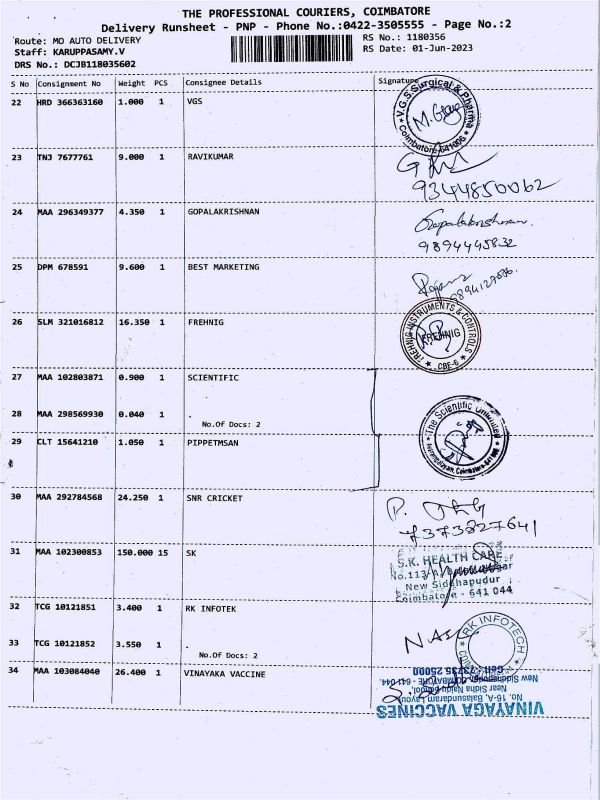 THE PROFESSIONAL COURIERS, COIMBATORE
Delivery Runsheet - PNP - Phone No.:0422-3505555 - Page No.:2
Route: MO AUTO DELIVERY RS No.: 1180356
Staff: KARUPPASAMY.V RS Date: 01-Jun-2023
DRS No.: DCJB118035602
S No Consignment No Weight PCS Consignee Details Signature
22 HRD 366363160 1.000 1 VGS
V.G.S Surgical & Pharma
Coimbatore 641006
23 TNJ 7677761 9.000 1 RAVIKUMAR
9344850062
24 MAA 296349377 4.350 1 GOPALAKRISHNAN
Gopalakrishnan
9894445832
25 DPM 678591 9.600 1 BEST MARKETING
26 SLM 321016812 16.350 1 FREHNIG
FREHNIG INSTRUMENTS & CONTROLS
FREHNIG
CBE-6
27 MAA 102803871 0.900 1 SCIENTIFIC
28 MAA 298569930 0.040 1
No.Of Docs: 2
The Scientific
29 CLT 15641210 1.050 1 PIPPETMSAN
30 MAA 292784568 24.250 1 SNR CRICKET
7373827641
31 MAA 102300853 150.000 15 SK
S.K. HEALTH CARE
No.113-A
New Siddhapudur
Coimbatore - 641 044
32 TCG 10121851 3.400 1 RK INFOTEK
RK INFOTECH
33 TCG 10121852 3.550 1
No.Of Docs: 2
34 MAA 103084040 26.400 1 VINAYAKA VACCINE
VINAYAGA VACCINES
No. 16-A, Balasundaram Layout,
Near Sidha Naidu School,
New Siddhapudur, COIMBATORE - 641 044.
Cell : 73735 25000